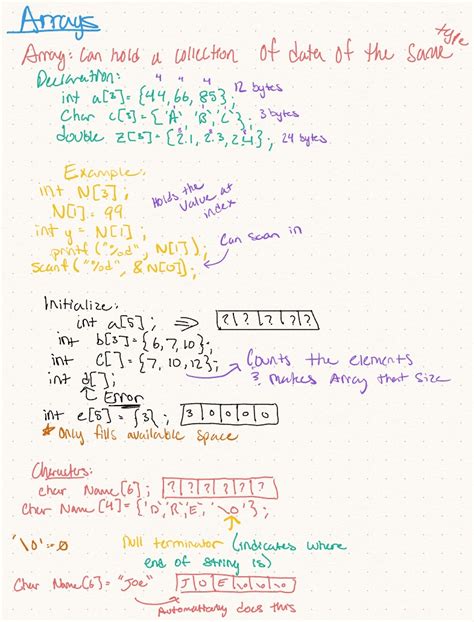 Arrays
Array: Can hold a collection of data of the same type
Declaration: 4 4 4
int a[3] = {44, 66, 85}; 12 bytes
Char c[3] = {'A', 'B', 'C'}; 3 bytes
double z[3] = {2.1, 2.3, 2.4}; 24 bytes
Example:
int N[3];
N[1] = 99
Holds the value at index
int y = N[1];
printf("%d", N[1]);
scanf("%d", &N[0]); Can scan in
Initialize:
int a[5]; ⇒ ? ? ? ? ?
int b[3] = {6, 7, 10};
int c[] = {7, 10, 12}; → Counts the elements
& makes Array that size
int d[];
↑ Error
int e[5] = {3}; 3 0 0 0 0
* Only fills available space
Characters:
char Name[6]; ? ? ? ? ? ?
Char Name[4] = {'D', 'R', 'E', '\0'};
'\0' = 0 Null terminator (indicates where
end of string is)
Char Name[6] = "Joe" J O E \0 \0 \0
Automatically does this